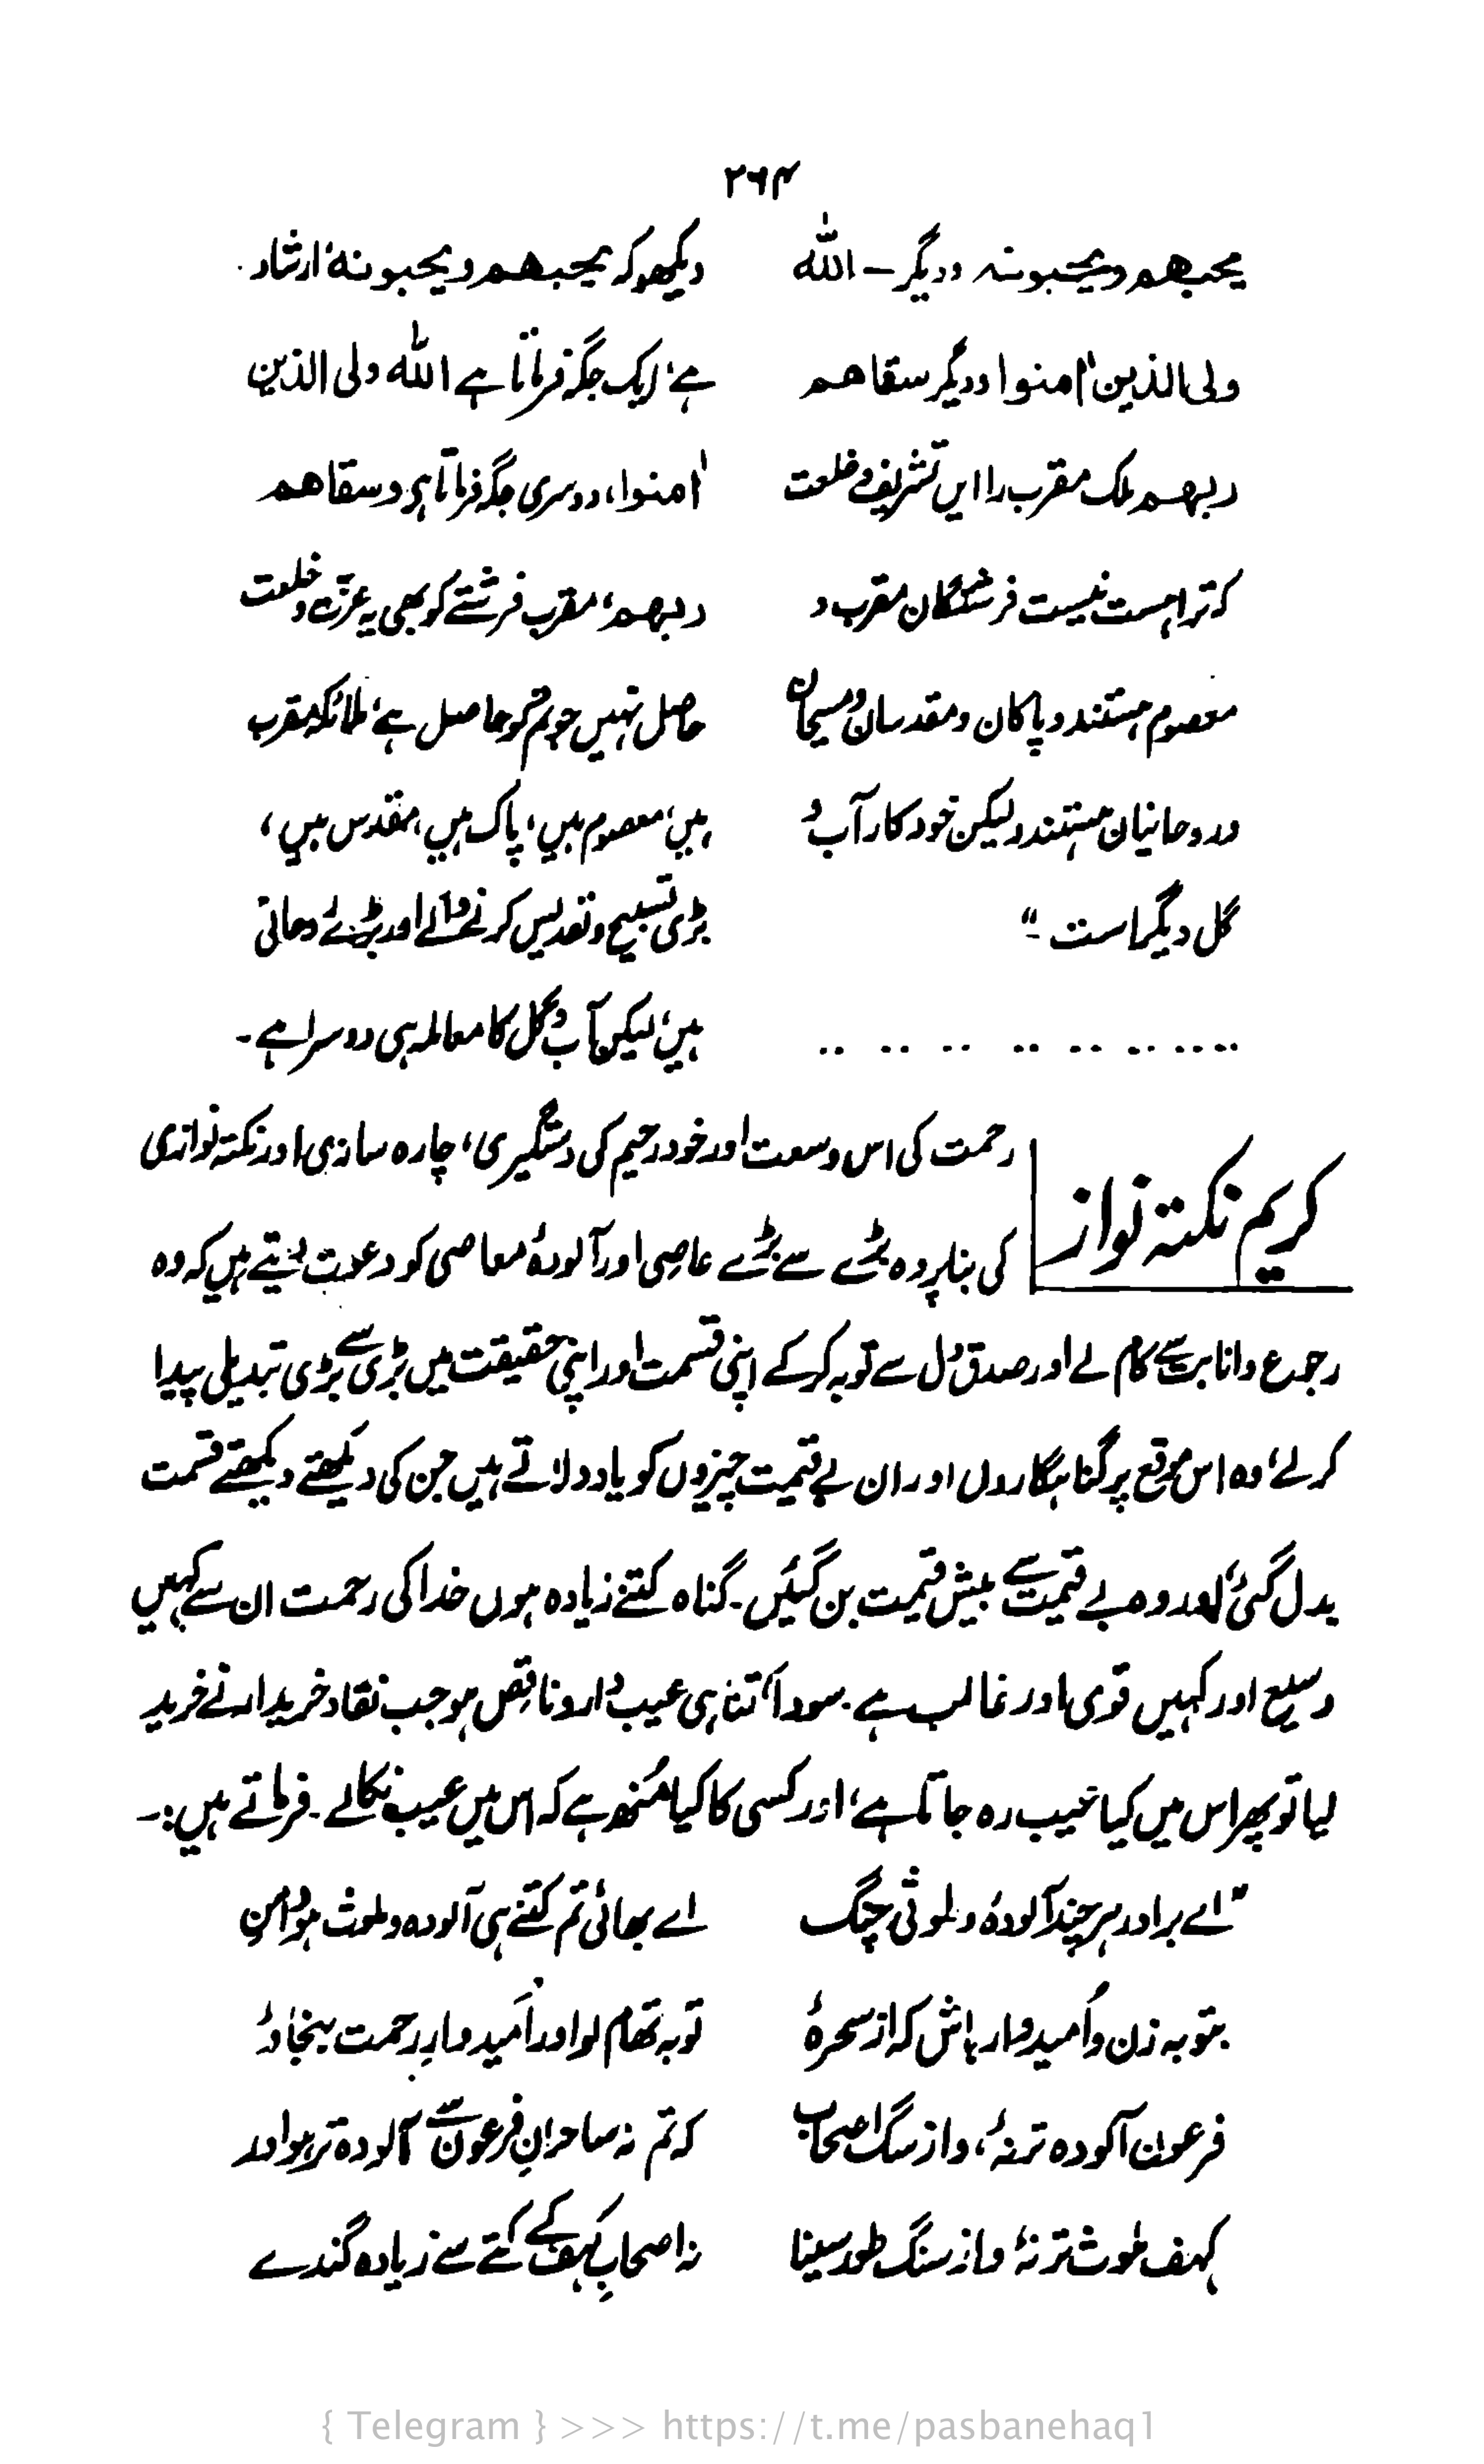 ۲۶۴
یحبهم ویحبونہ ودیگر – اللّٰه
ولی الذین اٰمنوا ودیگر سقاهم
ربهم ملک مقرب را ایں تشریف و خلعت
کہ تراہست نیست فرشتگان مقرب و
معصوم ہستند و پاکان و مقدسان و مسبحان
و روحانیان ہستند ولیکن خود کار آب و
گل دیگر است ۔“
دیکھو کہ یحبهم ویحبونهٗ ارشاد
ہے، ایک جگہ فرماتا ہے اللّٰه ولی الذین
اٰمنوا، دوسری جگہ فرماتا ہی وسقاهم
ربهم، مقرب فرشتے کو بھی یہ عزت و خلعت
حاصل نہیں جو تم کو حاصل ہے، ملائکہ مقرب
ہیں، معصوم ہیں، پاک ہیں، مقدس ہیں،
بڑی تسبیح و تقدیس کرنے والے اور بڑے روحانی
ہیں، لیکن آب و گل کا معاملہ ہی دوسرا ہے۔
کریم نکتہ نواز
رحمت کی اس وسعت اور خود رحیم کی دستگیری، چارہ سازی اور نکتہ نوازی
کی بنا پر وہ بڑے سے بڑے عاصی اور آلودۂ معاصی کو دعوت دیتے ہیں کہ وہ
رجوع و انابت سے کام لے اور صدق دل سے توبہ کر کے اپنی قسمت اور اپنی حقیقت میں بڑی سے بڑی تبدیلی پیدا
کرلے، وہ اس موقع پر گناہگاروں اور ان بے قیمت چیزوں کو یاد دلاتے ہیں جن کی دیکھتے دیکھتے قسمت
بدل گئی، اور وہ بے قیمت سے بیش قیمت بن گئیں۔ گناہ کتنے زیادہ ہوں خدا کی رحمت ان سے کہیں
وسیع اور کہیں قوی اور غالب ہے۔ سودا کتنا ہی عیب دار و ناقص ہو جب نقاد خریدار نے خرید
لیا تو پھر اس میں کیا عیب رہ جاتا ہے، اور کسی کا کیا مُنھ ہے کہ اس میں عیب نکالے۔ فرماتے ہیں :۔
”اے برادر ہر چند آلودۂ و ملوثی چنگ
بتوبہ زن و اُمیدوار باش کہ از سحرۂ
فرعون آلودہ تر نۂ، واز سگ اصحاب
کہف ملوث تر نۂ واز سنگ طور سینا
اے بھائی تم کتنے ہی آلودہ و ملوث ہو دامنِ
توبہ تھام لو اور اُمیدوارِ رحمت بنجاؤ
کہ تم نہ ساحرانِ فرعون سے آلودہ تر ہو اور
نہ اصحابِ کہف کے کُتے سے زیادہ گندے
{ Telegram } >>> https://t.me/pasbanehaq1